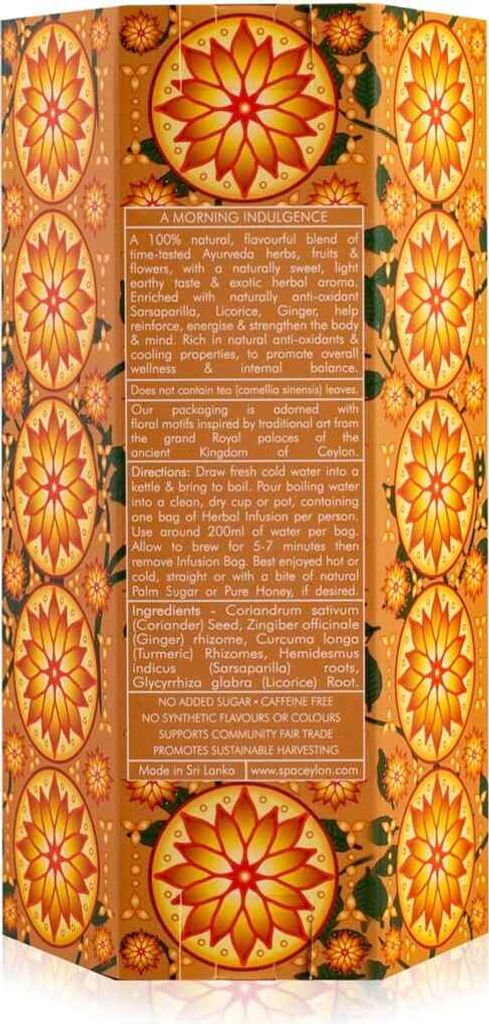 A MORNING INDULGENCE
A 100% natural, flavourful blend of
time-tested Ayurveda herbs, fruits &
flowers, with a naturally sweet, light
earthy taste & exotic herbal aroma.
Enriched with naturally anti-oxidant
Sarsaparilla, Licorice, Ginger, help
reinforce, energise & strengthen the body
& mind. Rich in natural anti-oxidants &
cooling properties, to promote overall
wellness & internal balance.
Does not contain tea (camellia sinensis) leaves.
Our packaging is adorned with
floral motifs inspired by traditional art from
the grand Royal palaces of the
ancient Kingdom of Ceylon.
Directions: Draw fresh cold water into a
kettle & bring to boil. Pour boiling water
into a clean, dry cup or pot, containing
one bag of Herbal Infusion per person.
Use around 200ml of water per bag.
Allow to brew for 5-7 minutes then
remove Infusion Bag. Best enjoyed hot or
cold, straight or with a bite of natural
Palm Sugar or Pure Honey, if desired.
Ingredients - Coriandrum sativum
(Coriander) Seed, Zingiber officinale
(Ginger) rhizome, Curcuma longa
(Turmeric) Rhizomes, Hemidesmus
indicus (Sarsaparilla) roots,
Glycyrrhiza glabra (Licorice) Root.
NO ADDED SUGAR • CAFFEINE FREE
NO SYNTHETIC FLAVOURS OR COLOURS
SUPPORTS COMMUNITY FAIR TRADE
PROMOTES SUSTAINABLE HARVESTING
Made in Sri Lanka | www.spaceylon.com